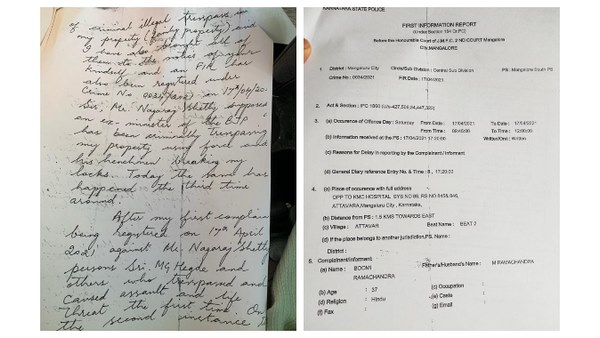 of criminal illegal trespass in
my property (family property) and
I have also brought all of
them to the notice of your
kindself and an FIR has
also been registered under
Crime No on 17/04/20
Sir, Mr. Nagaraj Shetty supposed
an ex-minister of the BJP
has been criminally trespassing
my property using force and
his henchmen breaking my
locks. Today the same has
happened the third time
around.
After my first complain
being registered on 17th April
2021 against Mr. Nagaraj Shetty
persons Sri. MG Hegde and
others who trespassed and
caused assault and life
threat the first time. On
the second instance
KARNATAKA STATE POLICE
FIRST INFORMATION REPORT
(Under Section 154 Cr.P.C)
Before the Honourable Court of J.M.F.C. II ND COURT Mangalore
City, MANGALORE
1. District : Mangalore City Circle/Sub Division : Central Sub Division PS : Mangalore South PS
Crime No : 0034/2021 FIR Date : 17/04/2021
2. Act & Section : IPC 1860
3. (a) Occurrence of Offence Day : Saturday From Date : 17/04/2021 To Date : 17/04/2021
From Time : To Time :
(b) Information received at the PS : 17/04/2021 17:20:00 Written/Oral : Written
(c) Reasons for Delay in reporting by the Complainant / Informant
(d) General Diary reference Entry No. & Time : 8 , 17:20:00
4. (a) Place of occurrence with full address
OPP TO KMC HOSPITAL
ATTAVARA, Mangaluru City, Karnataka,
(b) Distance from PS : 1.5 KMS TOWARDS EAST
(c) Village : ATTAVAR Beat Name : BEAT 2
(d) If the place belongs to another jurisdiction, PS. Name :
District :
5. Complainant/Informant:
(a) Name : Father's/Husband's Name : M RAMACHANDRA
RAMACHANDRA
(b) Age : 37 (c) Occupation :
(d) Religion : Hindu (e) Caste :
(f) Fax : (g) Email :